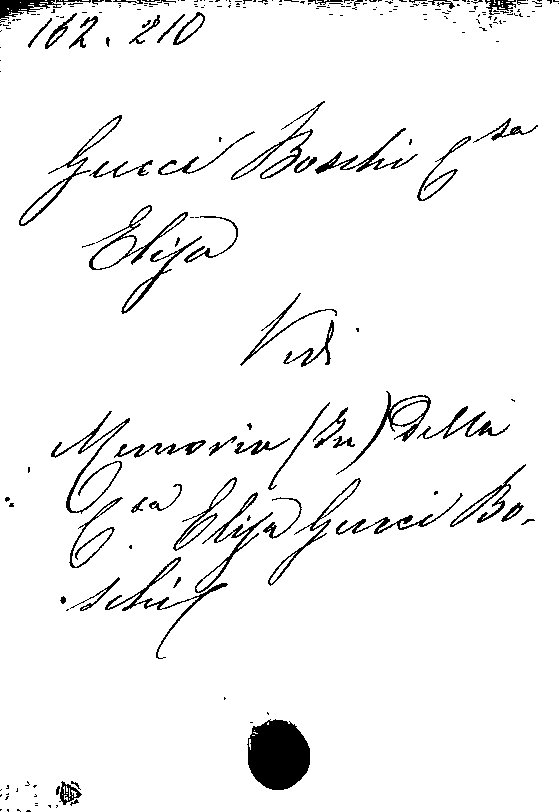 162.210
Gucci Boschi C.sa
Elisa
Vedi
Memoria (In) della
C.sa Elisa Gucci Bo-
schi